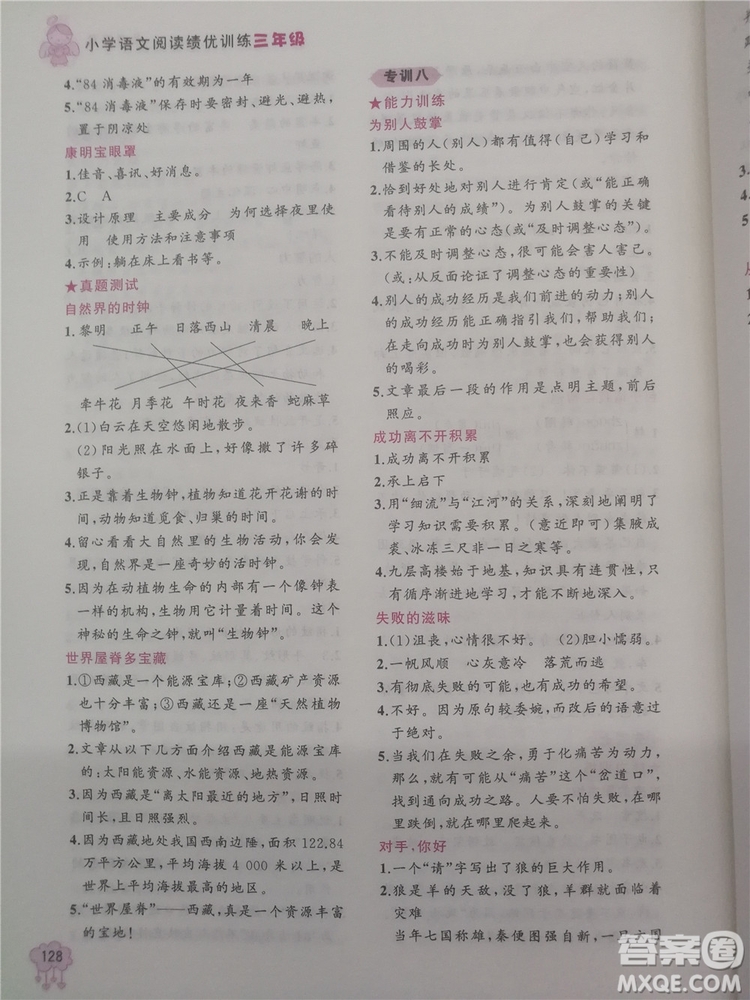 小学语文阅读绩优训练三年级
4.“84消毒液”的有效期为一年
5.“84消毒液”保存时要密封、避光、避热，
置于阴凉处
康明宝眼罩
1.佳音、喜讯、好消息。
2.C A
3.设计原理 主要成分 为何经常夜里使
用 使用方法和注意事项
4.示例：躺在床上看书等。
★真题测试
自然界的时钟
1.黎明 正午 日落西山 清晨 晚上
牵牛花 月季花 午时花 夜来香 蛇麻草
2.(1)白云在天空悠闲地散步。
(2)阳光照在水面上，好像撒了许多碎
银子。
3.正是靠着生物钟，植物知道花开花谢的时
间，动物知道觅食、归巢的时间。
4.留心看看大自然里的生物活动，你会发
现，大自然是一座奇妙的活时钟。
5.因为在动植物生命的内部有一个像钟表
一样的机构，生物用它计量着时间。这个
神秘的生命之钟，就叫“生物钟”。
世界屋脊多宝藏
1.①西藏是一个能源宝库；②西藏矿产资源
也十分丰富；③西藏还是一座“天然植物
博物馆”。
2.文章从以下几方面介绍西藏是能源宝库
的：太阳能资源、水能资源、地热资源。
3.因为西藏是“离太阳最近的地方”，日照时
间长，且日照强烈。
4.因为西藏地处我国西南边陲，面积122.84
万平方公里，平均海拔4 000米以上，是
世界上平均海拔最高的地区。
5.“世界屋脊”——西藏，真是一个资源丰富
的宝地！
128
专训八
★能力训练
为别人鼓掌
1.周围的人(别人)都有值得(自己)学习和
借鉴的长处。
2.恰到好处地对别人进行肯定(或“能正确
看待别人的成绩”)。为别人鼓掌的关键
是要有正常的心态(或“及时调整心态”)。
3.不能及时调整心态，很可能会害人害己。
(或：从反面论证了调整心态的重要性)
4.别人的成功经历是我们前进的动力；别人
的成功经历能正确指引我们，帮助我们。
在走向成功时为别人鼓掌，也会获得别人
的喝彩。
5.文章最后一段的作用是点明主题，前后
照应。
成功离不开积累
1.成功离不开积累
2.承上启下
3.用“细流”与“江河”的关系，深刻地阐明了
学习知识需要积累。(意近即可)集腋成
裘、冰冻三尺非一日之寒等。
4.九层高楼始于地基，知识具有连贯性，只
有循序渐进地学习，才能不断地深入。
失败的滋味
1.(1)沮丧，心情很不好。 (2)胆小懦弱。
2.一帆风顺 心灰意冷 落荒而逃
3.有彻底失败的可能，也有成功的希望。
4.不好。因为原句较委婉，而改后的语意过
于绝对。
5.当我们在失败之余，勇于化痛苦为动力，
那么，就有可能在“痛苦”这个“岔道口”，
找到通向成功之路。人要不怕失败，在哪
里跌倒，就在哪里爬起来。
对手，你好
1.一个“请”字写出了狼的巨大作用。
2.狼是羊的天敌，没了狼，羊群就面临着
灾难
当年七国称雄，秦便图强自新，一旦
答案圈
MXQE.COM